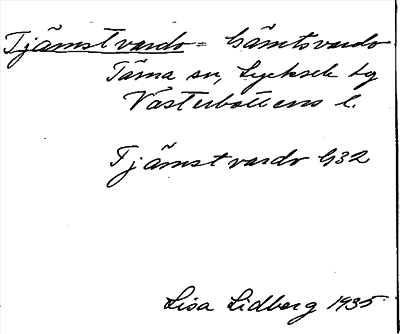 Tjämstvardo = Gämtsvardo
Tärna sn, Lycksele lg
Västerbottens l.
Tjämstvardo G32
Lisa Lidberg 1935